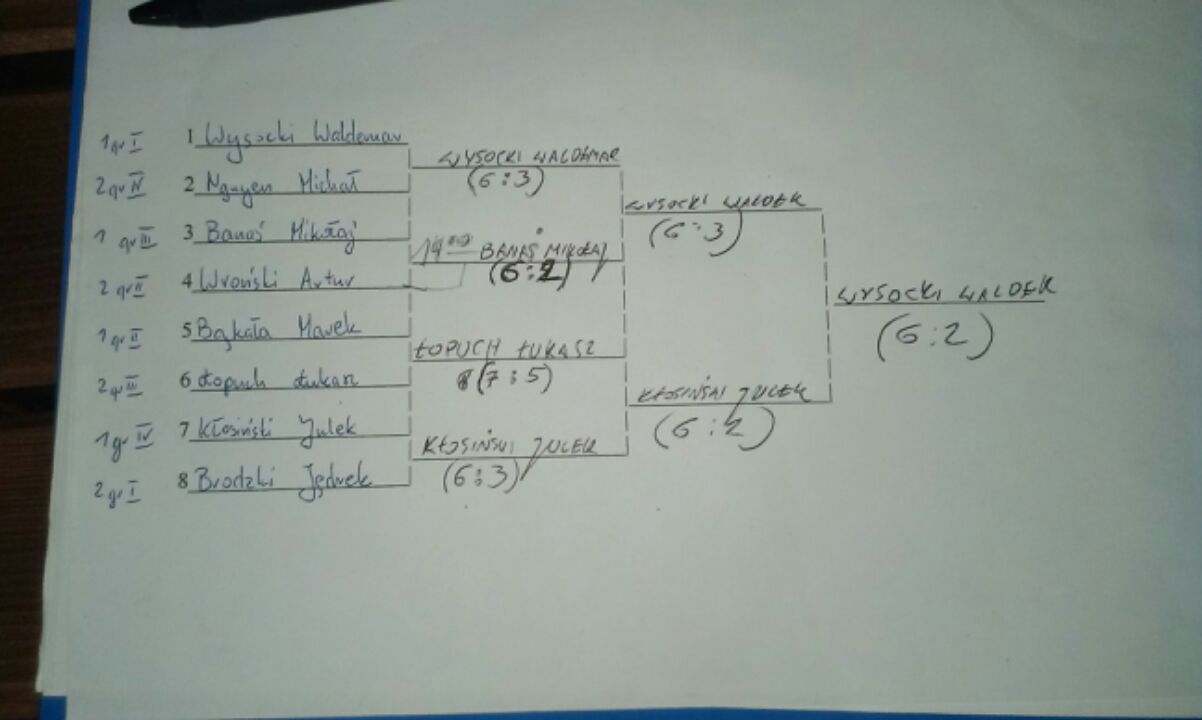 1 gr I 1 Wysocki Waldemar
WYSOCKI WALDEMAR
2 gr IV 2 Nguyen Michał
(6:3)
WYSOCKI WALDEK
1 gr III 3 Banaś Mikołaj
(6:3)
14:00 BANAŚ MIKOŁAJ
2 gr II 4 Wroński Artur
(6:2)
WYSOCKI WALDEK
1 gr II 5 Bąkała Marek
(6:2)
ŁOPUCH ŁUKASZ
2 gr III 6 Łopuch Łukasz
(7:5)
KŁOSIŃSKI JULEK
1 gr IV 7 Kłosiński Julek
(6:2)
KŁOSIŃSKI JULEK
2 gr I 8 Brodzki Jędrek
(6:3)